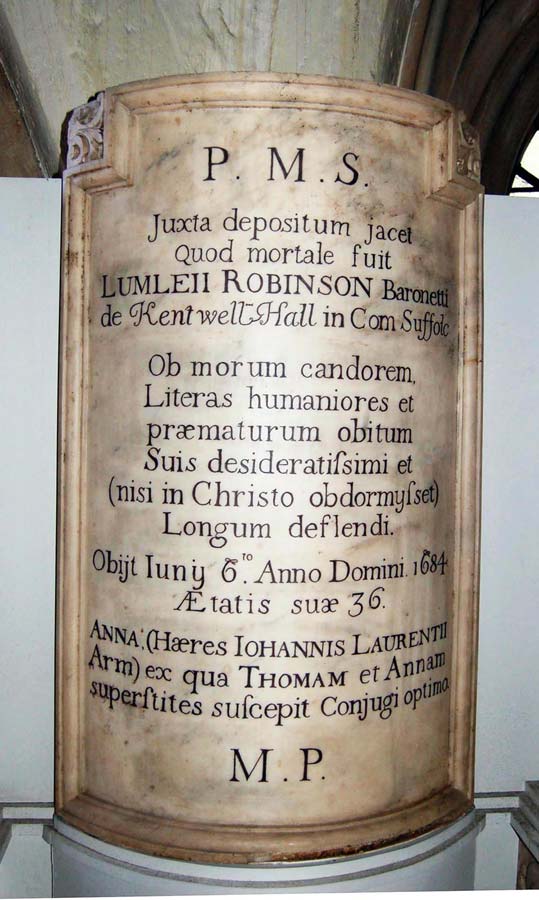 P. M. S.
Juxta depositum jacet
Quod mortale fuit
LUMLEII ROBINSON Baronetti
de Kentwell-Hall in Com Suffolc
Ob morum candorem,
Literas humaniores et
præmaturum obitum
Suis desideratiſsimi et
(nisi in Christo obdormyſset)
Longum deflendi.
Obijt Iunÿ 6.ᵗᵒ Anno Domini. 1684
Ætatis suæ 36.
ANNA, (Hæres IOHANNIS LAURENTII
Arm) ex qua THOMAM et Annam
superſtites suſcepit Conjugi optimo
M. P.